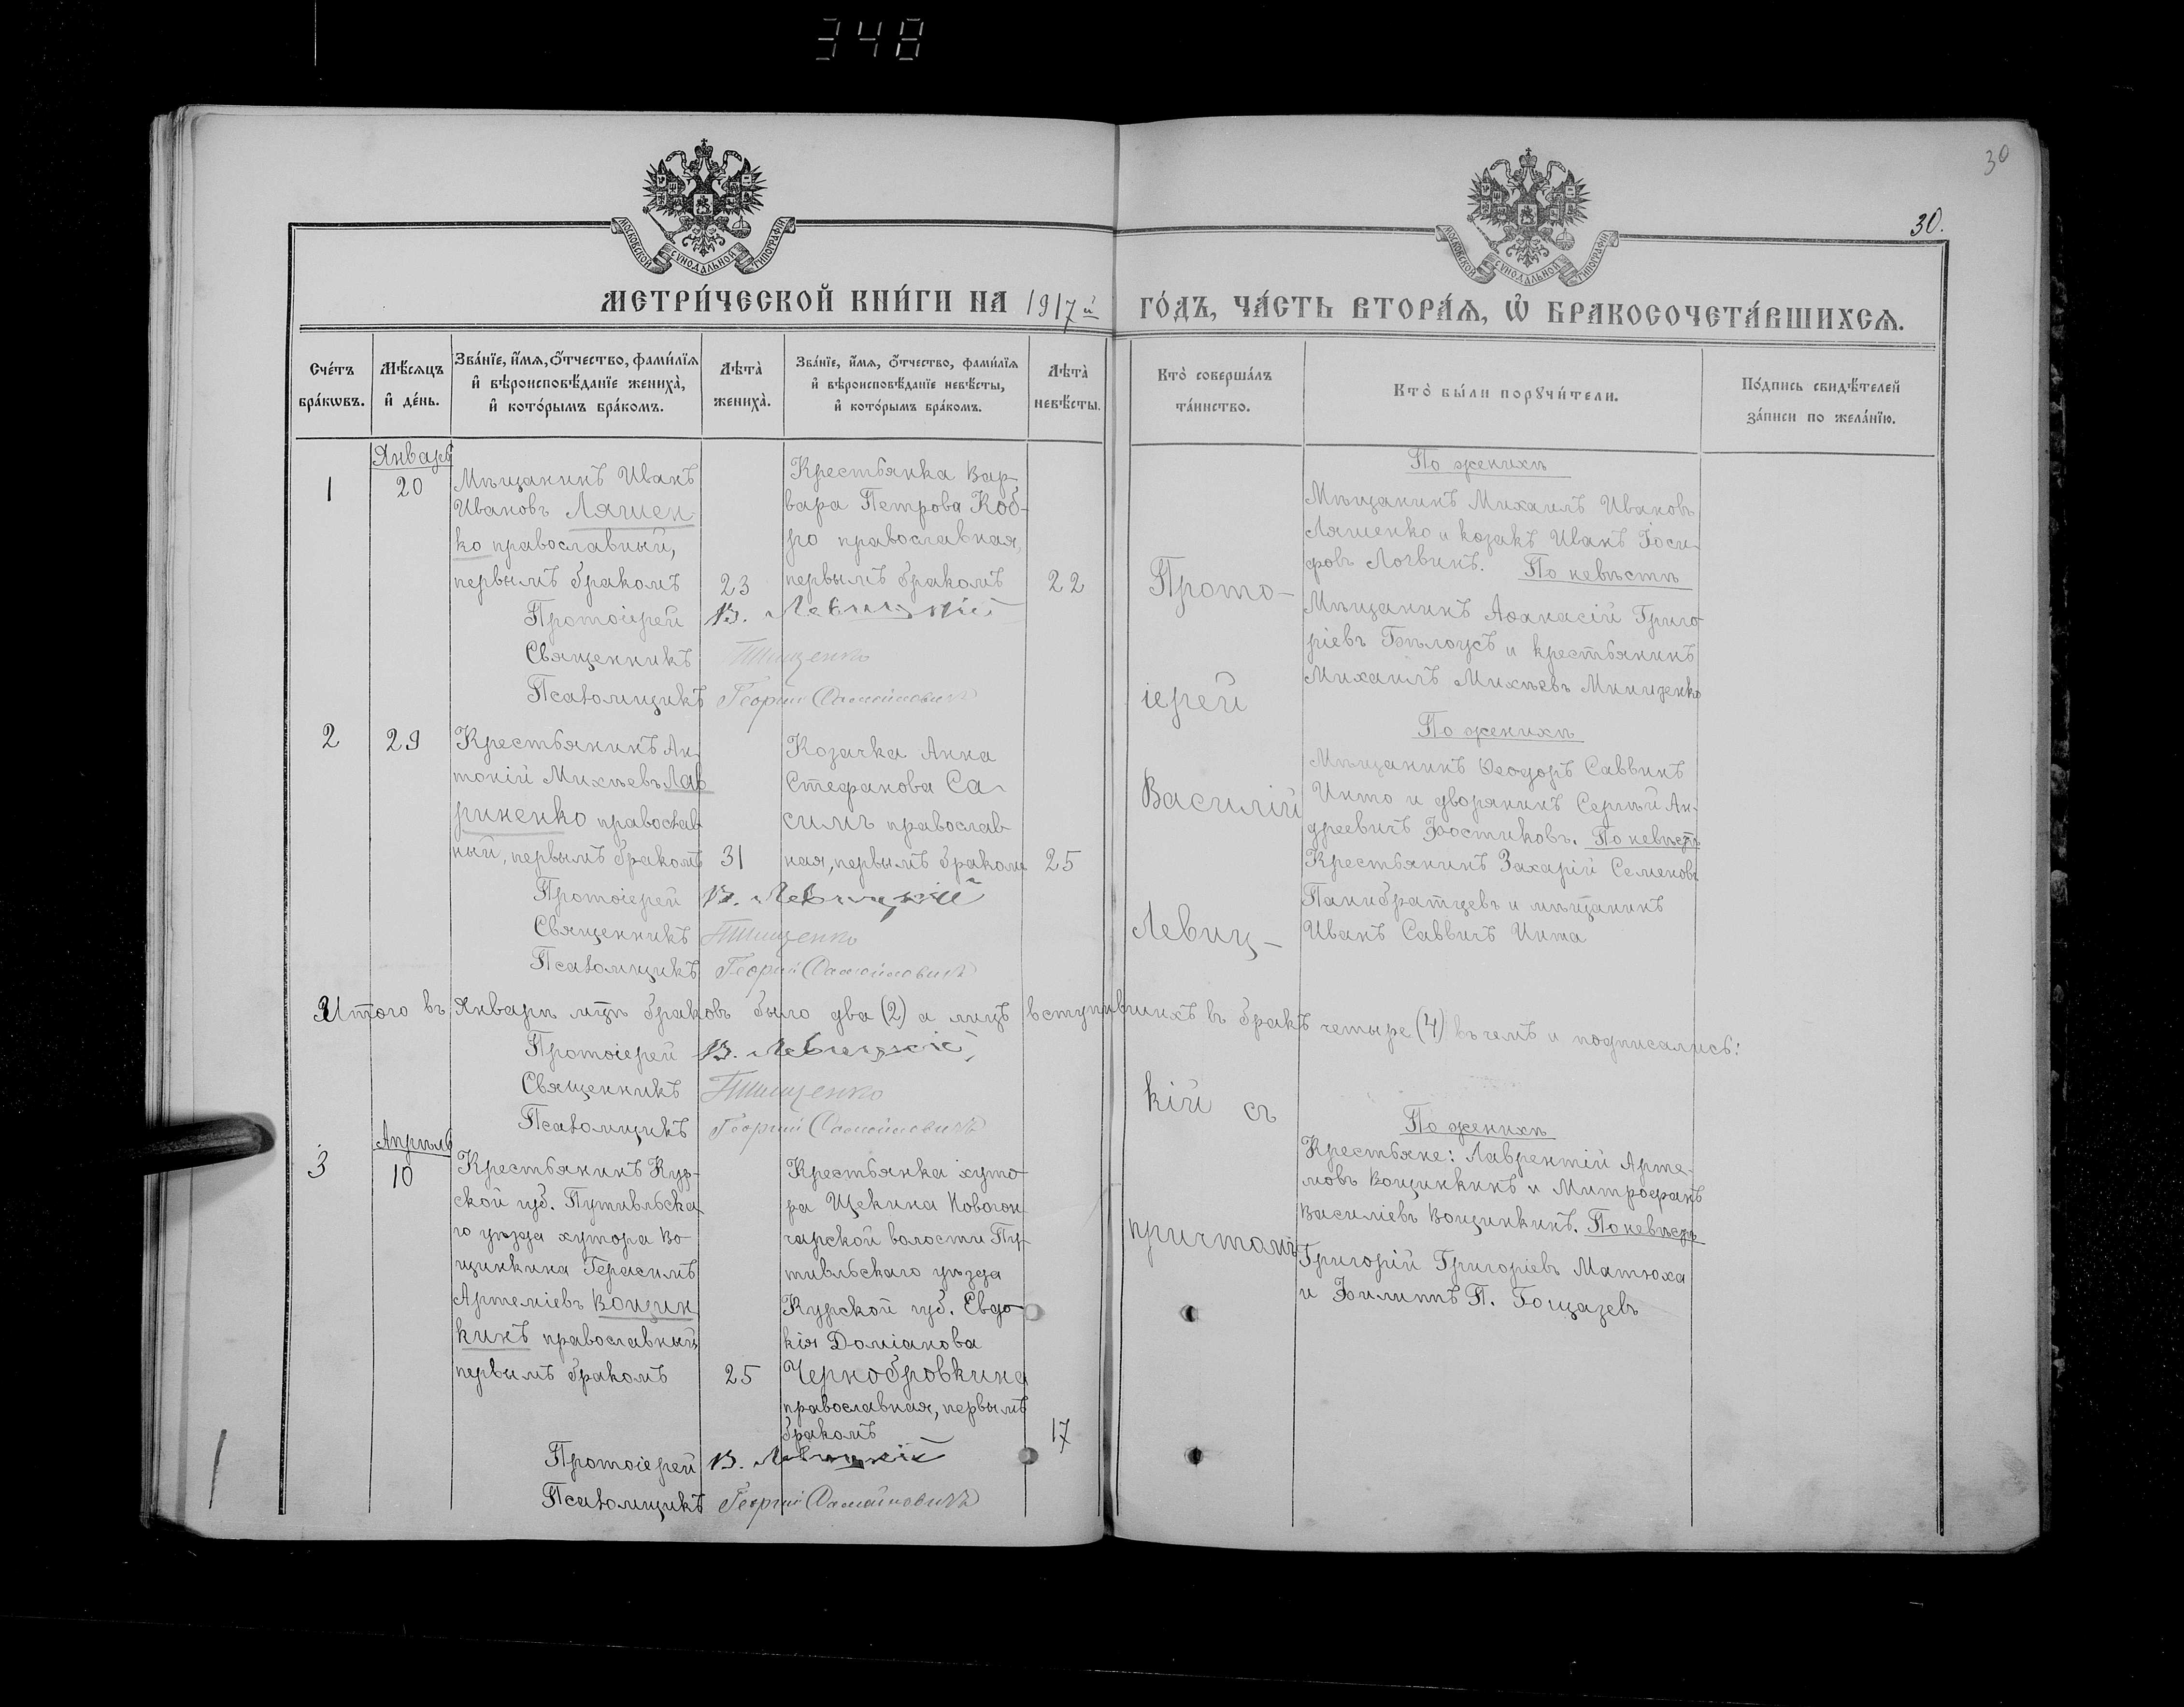 348
30
30.
МОСКОВСКОЙ СѴНОДАЛЬНОЙ ТИПОГРАФІИ
МОСКОВСКОЙ СѴНОДАЛЬНОЙ ТИПОГРАФІИ
МЕТРИ́ЧЕСКОЙ КНИ́ГИ НА 1917й ГО́ДЪ, ЧА́СТЬ ВТОРА́Ѧ, Ѽ БРАКОСОЧЕТА́ВШИХСѦ.
Сче́тъ
бра́кѡвъ.
Мѣ́сѧцъ
и҆ де́нь.
Зва́нїе, и҆́мѧ, ѻ҆́тчество, фами́лїѧ
и҆ вѣроисповѣ́данїе жениха̀,
и҆ кото́рымъ бра́комъ.
Лѣта̀
жениха̀.
Зва́нїе, и҆́мѧ, ѻ҆́тчество, фами́лїѧ
и҆ вѣроисповѣ́данїе невѣ́сты,
и҆ кото́рымъ бра́комъ.
Лѣта̀
невѣ́сты.
Кто̀ соверша́лъ
та́инство.
Кто̀ бы́ли порꙋчи́тели.
По́дпись свидѣ́телей
за́писи по жела́нїю.
1
Январь
20
Мѣщанинъ Иванъ
Ивановъ Ляшен-
ко православный,
первымъ бракомъ
23
Крестьянка Вар-
вара Петрова Коб-
ро православная,
первымъ бракомъ
22
По женихѣ
Мѣщанинъ Михаилъ Ивановъ
Ляшенко и козакъ Иванъ Іоси-
фовъ Логвинъ. По невѣстѣ
Мѣщанинъ Аѳанасій Григо-
ріевъ Бѣлоусъ и крестьянинъ
Михаилъ Михѣевъ Мищенко
Протоіерей В. Левицкій
Священникъ
Псаломщикъ Георгій Самойловичъ
2
29
Крестьянинъ Ан-
тоній Михѣевъ Лав
риненко православ
ный, первымъ бракомъ
31
Козачка Анна
Стефанова Са-
симъ православ
ная, первымъ бракомъ
25
По женихѣ
Мѣщанинъ Ѳеодоръ Саввинъ
Инто и дворянинъ Сергѣй Ан-
дреевичъ Фостиковъ. По невѣстѣ
Крестьянинъ Захарій Семеновъ
Панибратцевъ и мѣщанинъ
Иванъ Саввичъ Инта
Протоіерей В. Левицкій
Священникъ
Псаломщикъ Георгій Самойловичъ
Итого въ Январѣ мцѣ браковъ было два (2) а лицъ вступившихъ въ бракъ четыре (4) въ чемъ и подписались:
Протоіерей В. Левицкій
Священникъ
Псаломщикъ Георгій Самойловичъ
3
Апрѣль
10
Крестьянинъ Кур-
ской губ. Путивльска
го уѣзда хутора Во
щинкина Герасимъ
Артеміевъ Вощин
кинъ православный
первымъ бракомъ
25
Крестьянка хуто-
ра Щекина Новогон
чарской волости Пу-
тивльскаго уѣзда
Курской губ. Евдо
кія Доміанова
Чернобровкина
православная, первымъ
бракомъ
17
По женихѣ
Крестьяне: Лаврентій Арте-
мовъ Вощинкинъ и Митрофанъ
Василіевъ Вощинкинъ. По невѣстѣ
Григорій Григоріевъ Матюха
и Филиппъ П.
Протоіерей В. Левицкій
Псаломщикъ Георгій Самойловичъ
Прото-
іерей
Василій
Левиц-
кій съ
причтомъ